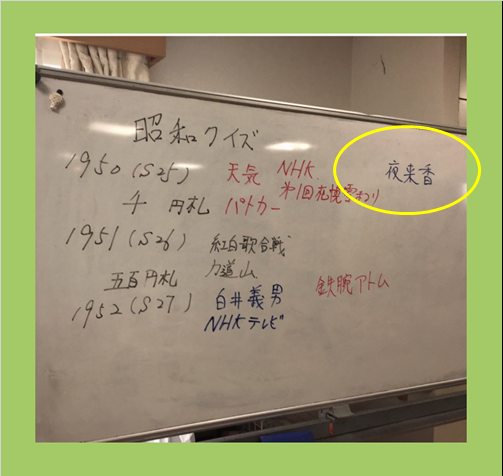 昭和クイズ
1950(S25) 天気 NHK 夜来香
第1回札幌雪まつり
千円札 パトカー
1951(S26) 紅白歌合戦
五百円札 力道山
鉄腕アトム
1952(S27) 白井義男
NHKテレビ